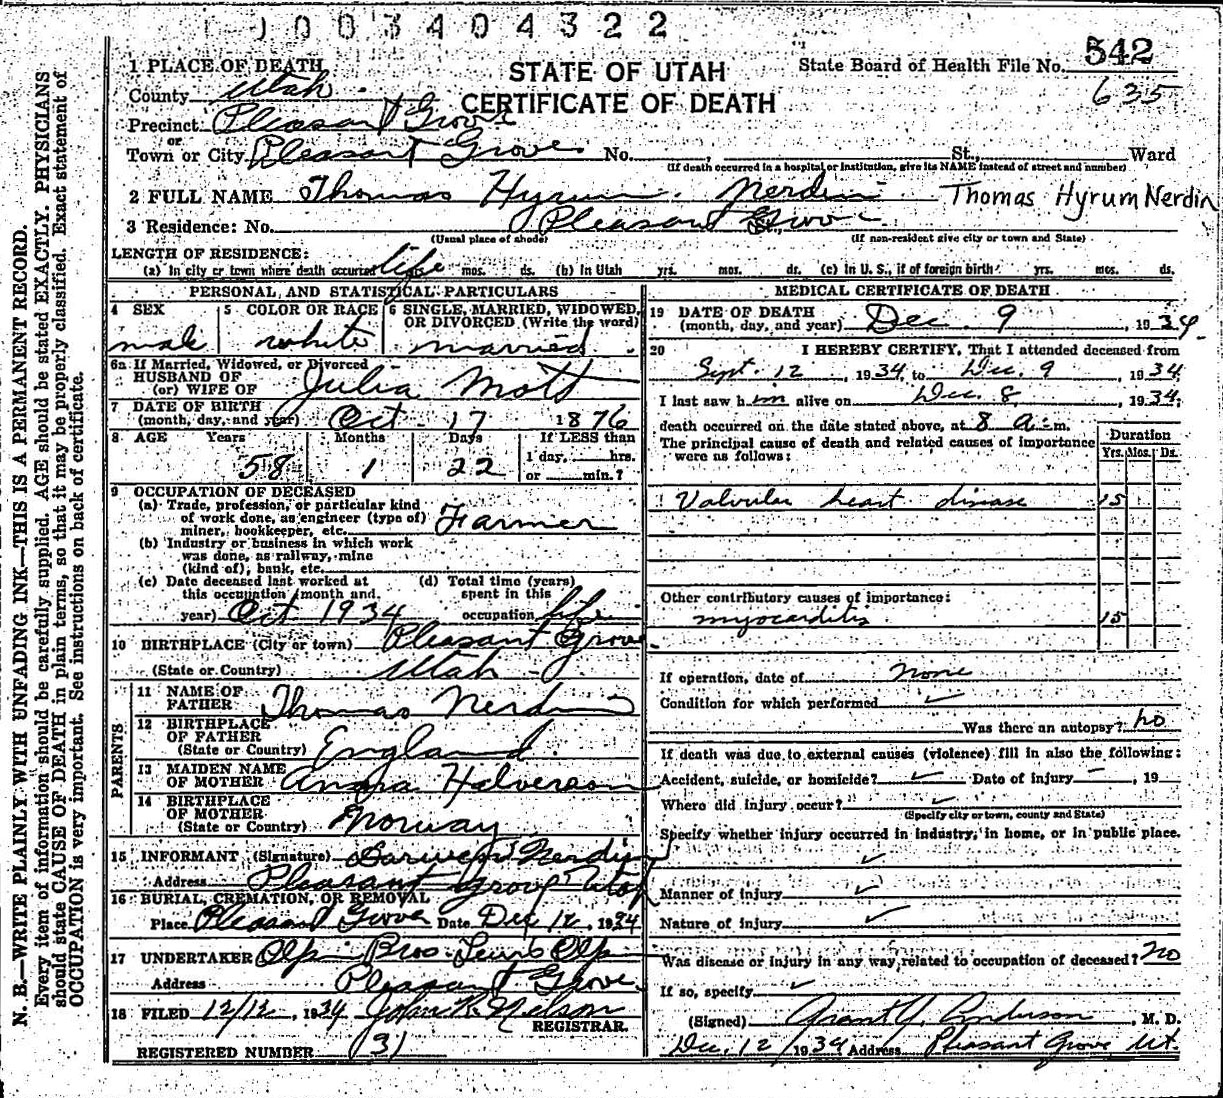 1003404322
542
1 PLACE OF DEATH
STATE OF UTAH
State Board of Health File No.
635
County Utah
CERTIFICATE OF DEATH
Precinct Pleasant Grove
or
Town or City Pleasant Grove No. , St., Ward
(If death occurred in a hospital or institution, give its NAME instead of street and number)
2 FULL NAME Thomas Hyrum Nerdin Thomas Hyrum Nerdin
3 Residence: No. Pleasant Grove
(Usual place of abode) (If non-resident give city or town and State)
LENGTH OF RESIDENCE:
(a) In city or town where death occurred life mos. ds. (b) In Utah yrs. mos. ds. (c) In U. S., if of foreign birth yrs. mos. ds.
PERSONAL AND STATISTICAL PARTICULARS
4 SEX 5 COLOR OR RACE 6 SINGLE, MARRIED, WIDOWED, OR DIVORCED (Write the word)
male white married
6a If Married, Widowed, or Divorced
HUSBAND OF
(or) WIFE OF Julia Mott
7 DATE OF BIRTH
(month, day, and year) Oct 17 1876
8 AGE Years Months Days If LESS than
1 day, hrs.
58 1 22 or min.?
9 OCCUPATION OF DECEASED
(a) Trade, profession, or particular kind
of work done, as engineer (type of)
miner, bookkeeper, etc. Farmer
(b) Industry or business in which work
was done, as railway, mine
(kind of), bank, etc.
(c) Date deceased last worked at
this occupation (month and
year) Oct 1934
(d) Total time (years)
spent in this
occupation life
10 BIRTHPLACE (City or town) Pleasant Grove
(State or Country) Utah
PARENTS
11 NAME OF
FATHER Thomas Nerdin
12 BIRTHPLACE
OF FATHER
(State or Country) England
13 MAIDEN NAME
OF MOTHER Halverson
14 BIRTHPLACE
OF MOTHER
(State or Country) Norway
15 INFORMANT (Signature) Nerdin
Address Pleasant Grove Utah
16 BURIAL, CREMATION, OR REMOVAL
Place Pleasant Grove Date Dec 12, 1934
17 UNDERTAKER Olpin Bros Lewis Olpin
Address Pleasant Grove
18 FILED 12/12, 1934 John R. Nelson
REGISTRAR.
REGISTERED NUMBER 31
MEDICAL CERTIFICATE OF DEATH
19 DATE OF DEATH
(month, day, and year) Dec. 9, 1934
20 I HEREBY CERTIFY, That I attended deceased from
Sept. 12, 1934 to Dec. 9, 1934
I last saw him alive on Dec. 8, 1934;
death occurred on the date stated above, at 8 a.m.
The principal cause of death and related causes of importance
were as follows:
Duration
Yrs. Mos. Ds.
Valvular heart disease 15
Other contributory causes of importance:
myocarditis 15
If operation, date of none
Condition for which performed
Was there an autopsy? no
If death was due to external causes (violence) fill in also the following:
Accident, suicide, or homicide? Date of injury , 19
Where did injury occur?
(Specify city or town, county and State)
Specify whether injury occurred in industry, in home, or in public place.
Manner of injury
Nature of injury
Was disease or injury in any way related to occupation of deceased? no
If so, specify
(Signed) Grant Y. Anderson, M. D.
Dec. 12 1934 Address Pleasant Grove Ut.
N. B.—WRITE PLAINLY WITH UNFADING INK—THIS IS A PERMANENT RECORD.
Every item of information should be carefully supplied. AGE should be stated EXACTLY. PHYSICIANS
should state CAUSE OF DEATH in plain terms, so that it may be properly classified. Exact statement of
OCCUPATION is very important. See instructions on back of certificate.